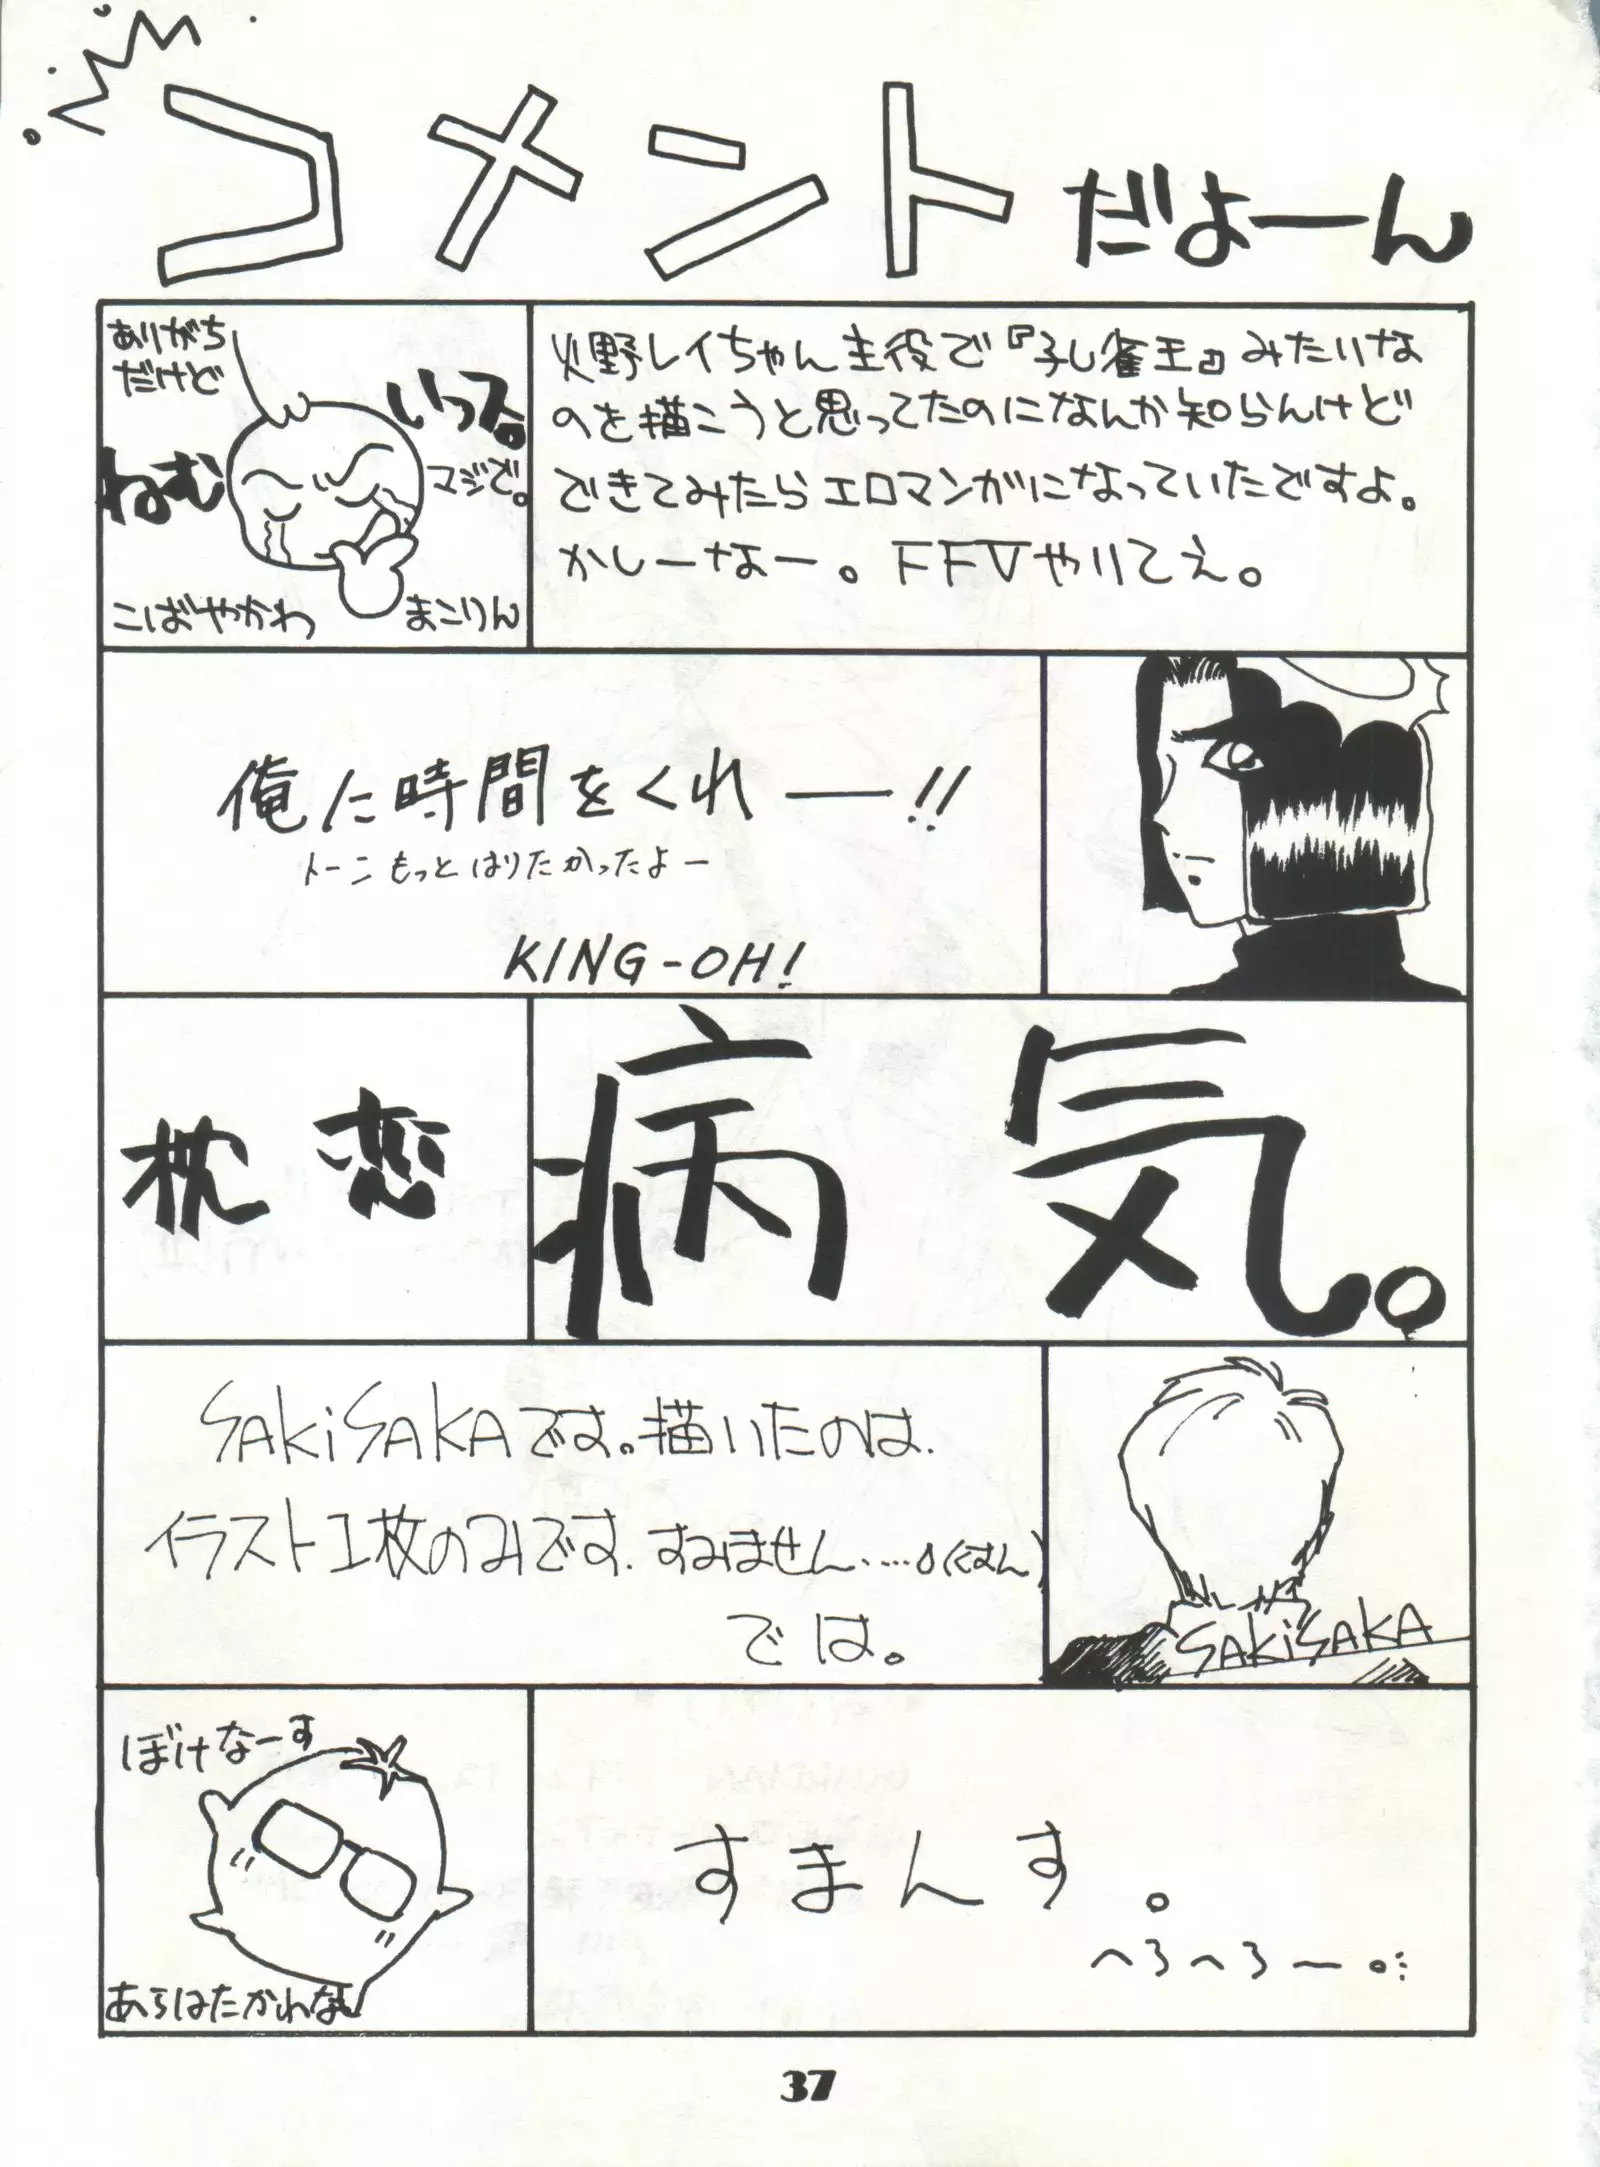 コメントだよーん
ありがち
だけど
ねむ
いっス。
マジで。
こばやかわ まこりん
火野レイちゃん主役で『孔雀王』みたいな
のを描こうと思ってたのになんか知らんけど
できてみたらエロマンガになっていたですよ。
かしーなー。FFⅤやりてえ。
俺に時間をくれ――!!
トーンもっとはりたかったよー
KING-OH!
枕 恋
病気。
SAKiSAKAです。描いたのは、
イラスト1枚のみです。すみません……
では。
SAKiSAKA
ぼけなーす
あらはたかれな
すまんす。
へろへろー
37